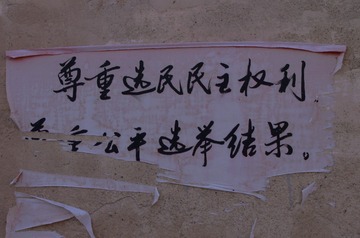 尊重选民民主权利,
公平选举结果。